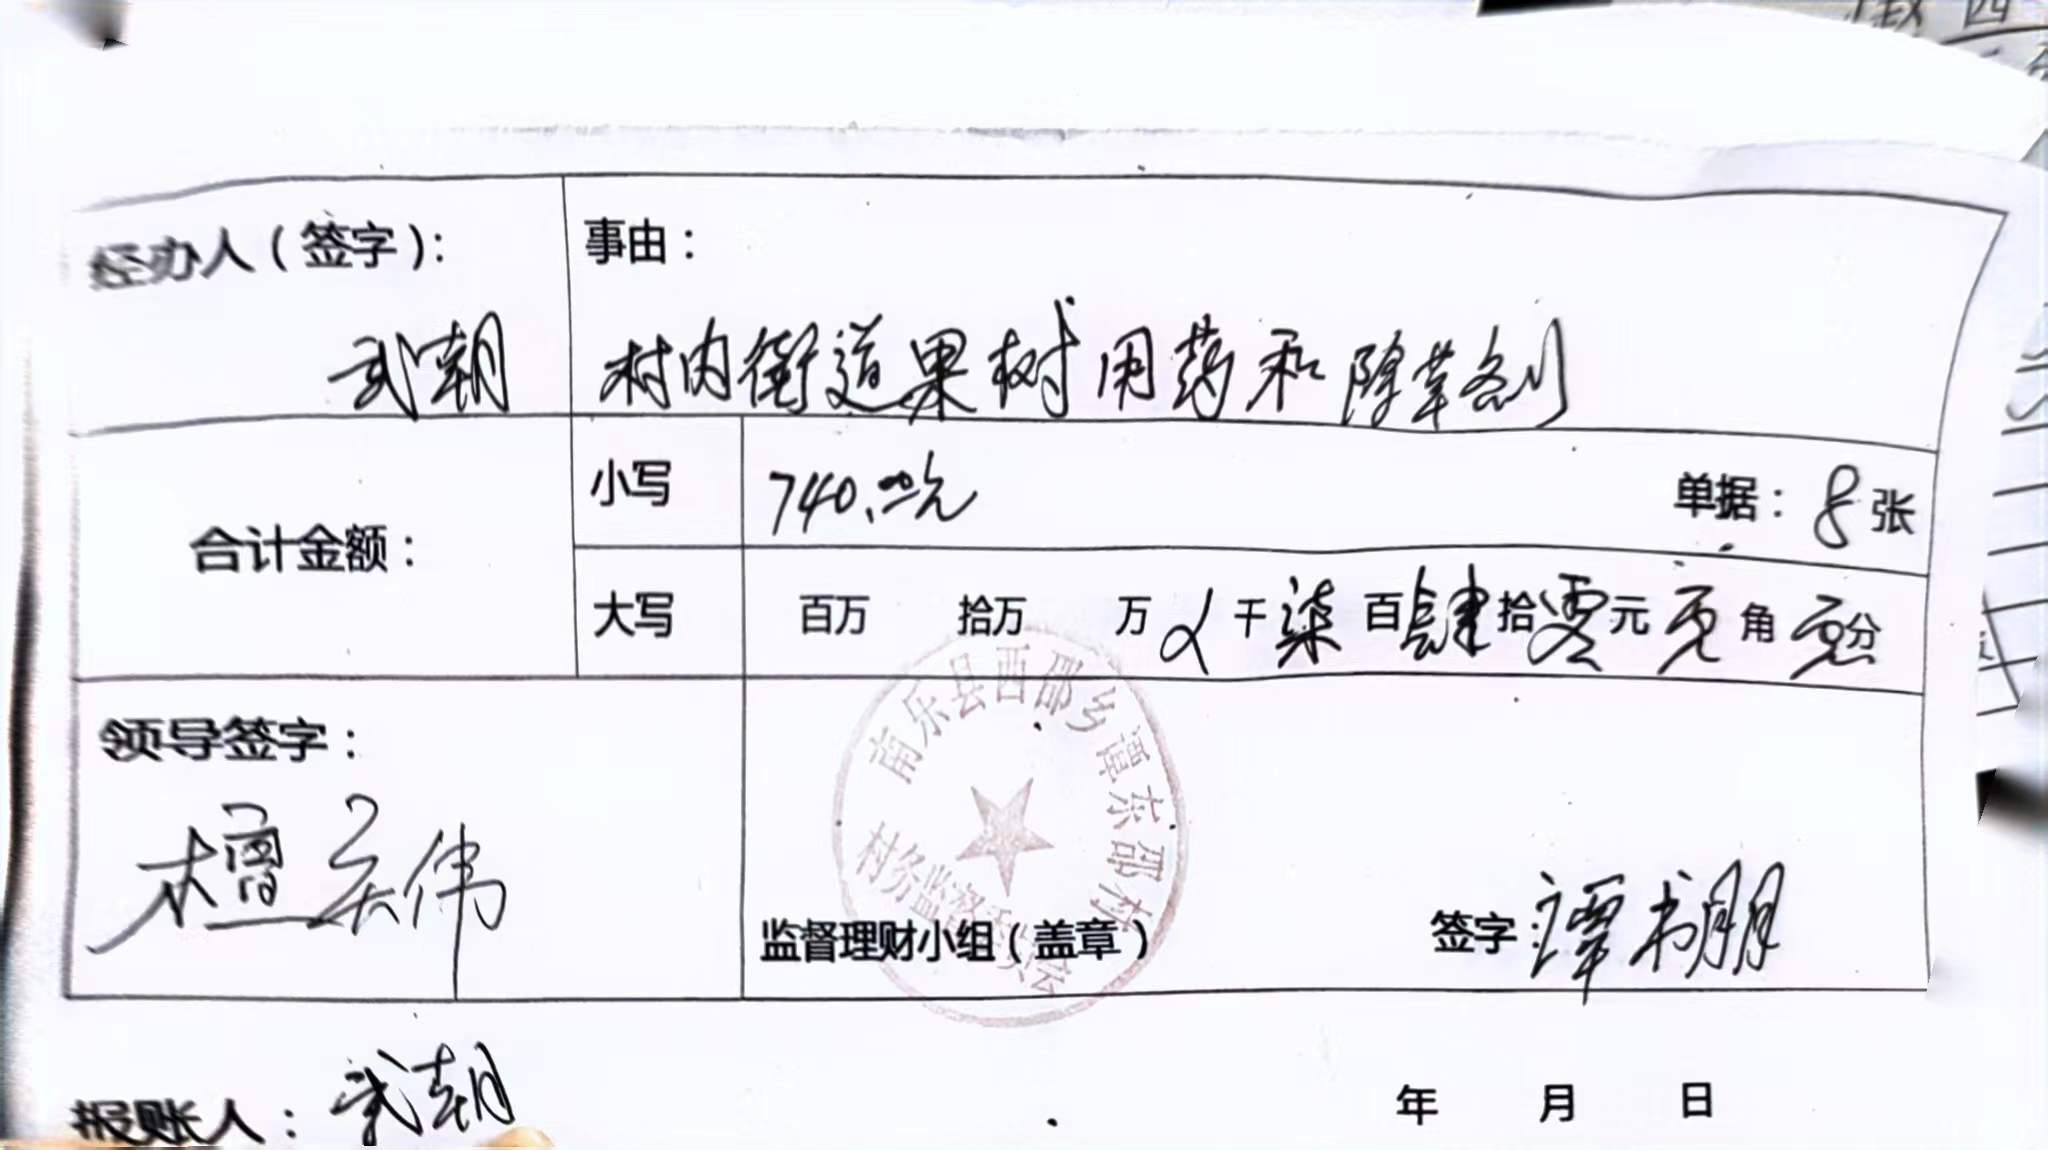 经办人（签字）：
武朝
事由：
村内街道果树用药和除草剂
合计金额：
小写
740.00元
单据：8张
大写
百万 拾万 万 千柒百肆拾零元零角零分
领导签字：
南乐县西邵乡谭东邵村
村务监督委员会
监督理财小组（盖章）
签字：谭书朋
报账人：武朝
年 月 日